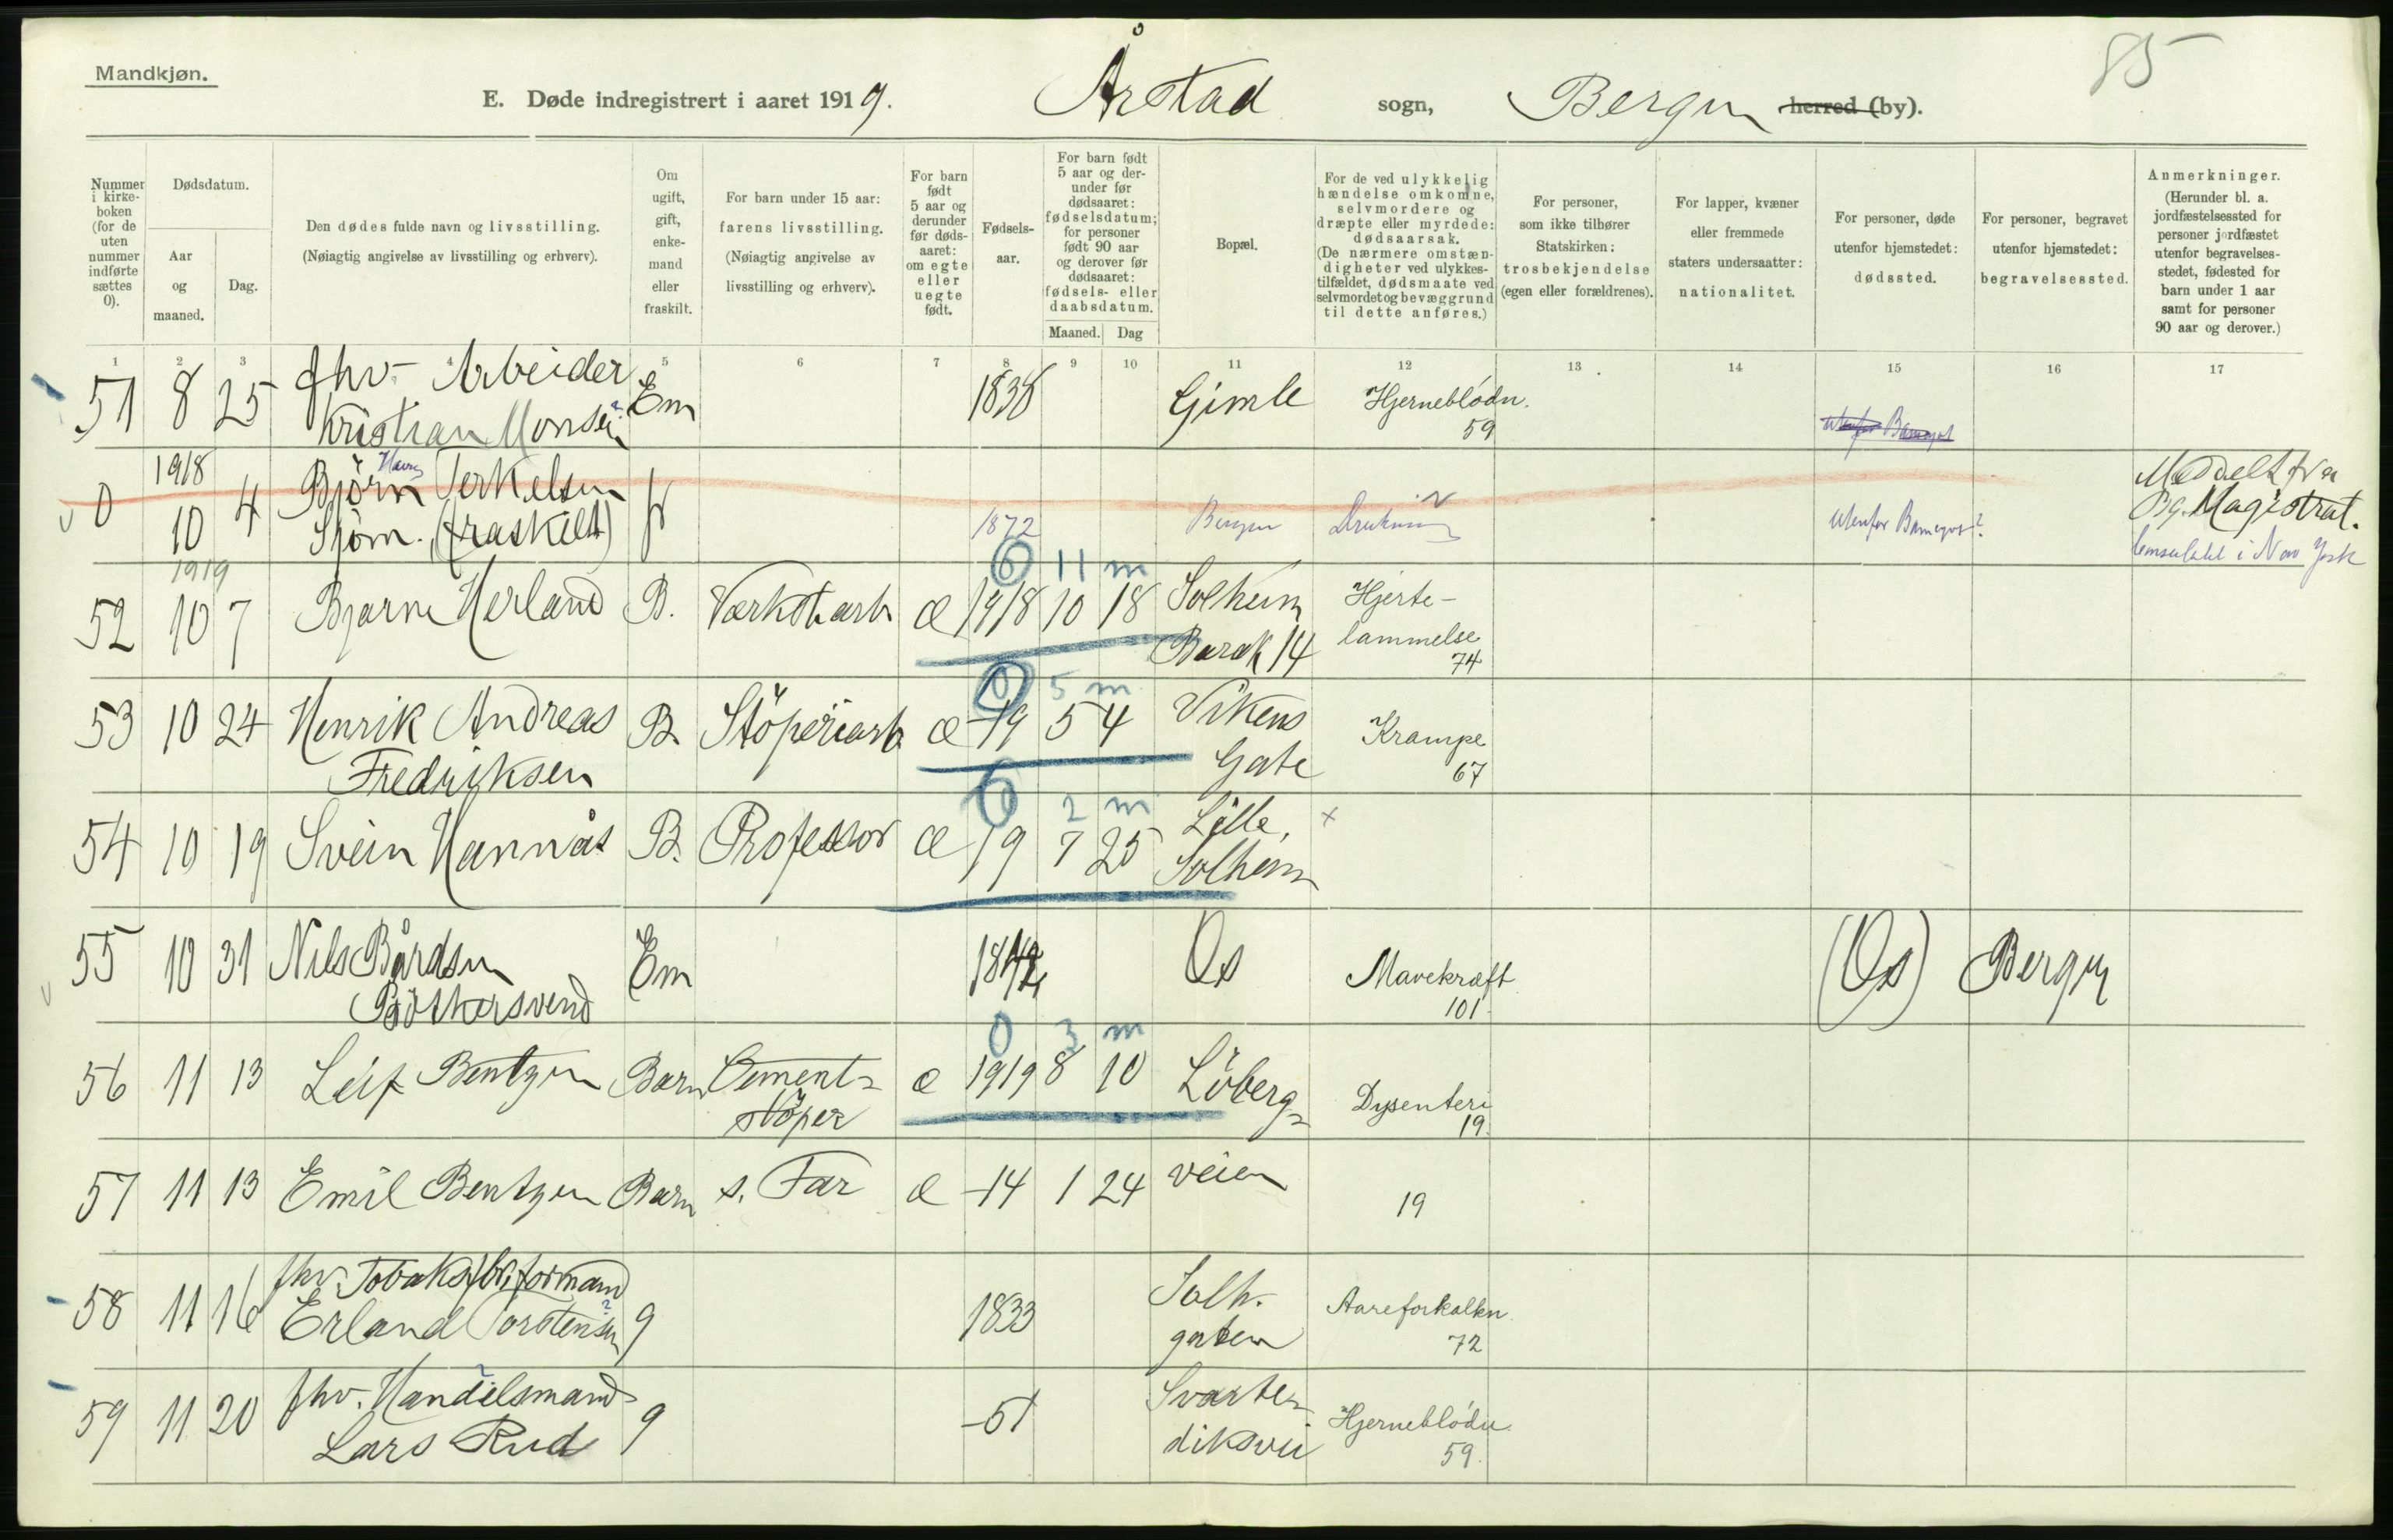 Mandkjøn.
85
E. Døde indregistrert i aaret 1919.
Årstad sogn, Bergen herred (by).
Nummer i kirke-boken (for de uten nummer indførte sættes 0).
Dødsdatum.
Aar og maaned.
Dag.
Den dødes fulde navn og livsstilling.
(Nøiagtig angivelse av livsstilling og erhverv).
Om ugift, gift, enke-mand eller fraskilt.
For barn under 15 aar: farens livsstilling.
(Nøiagtig angivelse av livsstilling og erhverv).
For barn født 5 aar og derunder før døds-aaret: om egte eller uegte født.
Fødsels-aar.
For barn født 5 aar og der-under før dødsaaret: fødselsdatum; for personer født 90 aar og derover før dødsaaret: fødsels- eller daabsdatum.
Maaned. Dag
Bopæl.
For de ved ulykkelig hændelse omkomne, selvmordere og dræpte eller myrdede: dødsaarsak.
(De nærmere omstæn-digheter ved ulykkes-tilfældet, dødsmaate ved selvmordet og bevæggrund til dette anføres.)
For personer, som ikke tilhører Statskirken: trosbekjendelse (egen eller forældrenes).
For lapper, kvæner eller fremmede staters undersaatter: nationalitet.
For personer, døde utenfor hjemstedet: dødssted.
For personer, begravet utenfor hjemstedet: begravelsessted.
Anmerkninger.
(Herunder bl. a. jordfæstelsessted for personer jordfæstet utenfor begravelses-stedet, fødested for barn under 1 aar samt for personer 90 aar og derover.)
1 2 3 4 5 6 7 8 9 10 11 12 13 14 15 16 17
51 8 25 fhv. Arbeider Em 1838 Gimle Hjerneblödn.
Kristian Monsen 59
1918
0 10 4 Björn Terkelsen Meddelt fra
Sjöm. (fraskilt) fr 1872 Bergen Drukning Utenfor Barnegat? Bg. Magistrat.
Konsulatet i New York
1919 0 11 m
52 10 7 Bjarne Herland B. Værkst.arb. æ 1918 10 18 Solheim Hjerte-
Barak 14 lammelse
74
0 5 m
53 10 24 Henrik Andreas B. Stöperiarb æ -19 5 4 Vikens Krampe
Fredriksen Gate 67
0 2 m
54 10 19 Svein Hannås B. Professor æ 19 7 25 Lille, x
Solheim
55 10 31 Nils Bårdsen Em Os Mavekræft (Os) Bergen
Bötkersvend 101.
0 3 m
56 11 13 Leif Bentzen Barn Cement- æ 1919 8 10 Löberg- Dysenteri
stöper 19.
57 11 13 Emil Bentzen Barn s. Far æ -14 1 24 veien 19
58 11 16 fhv. Tobaksfbr.formand Solh. Aareforkalkn
Erland Torstensen g 1833 gaten 72
59 11 20 fhv. Handelsmand g -51 Svarte- Hjerneblödn.
Lars Rud diksvei 59.